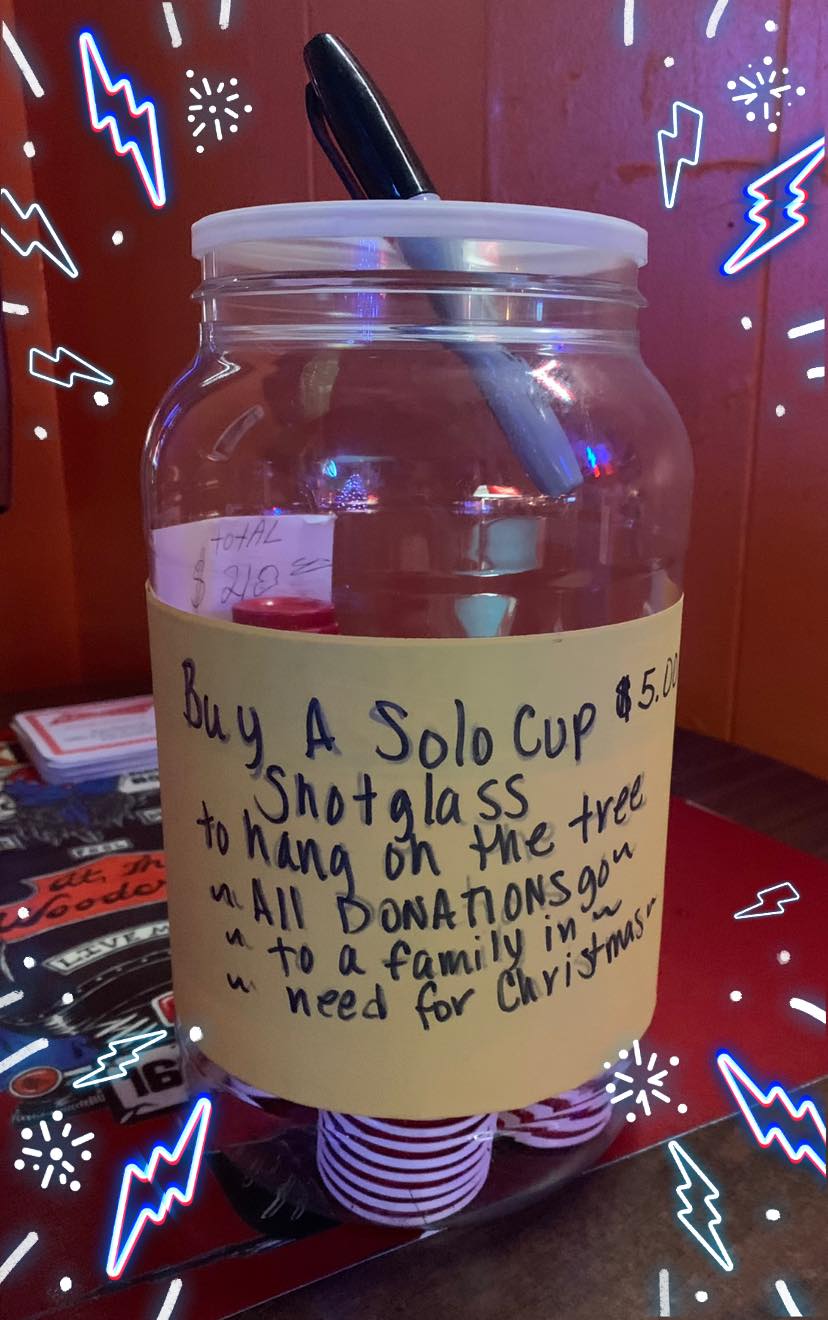 TOTAL
$ 210
Buy A Solo Cup $5.00
Shotglass
to hang on the tree
All DONATIONS go
to a family in
need for Christmas
At The
Wooden
LIVE
16